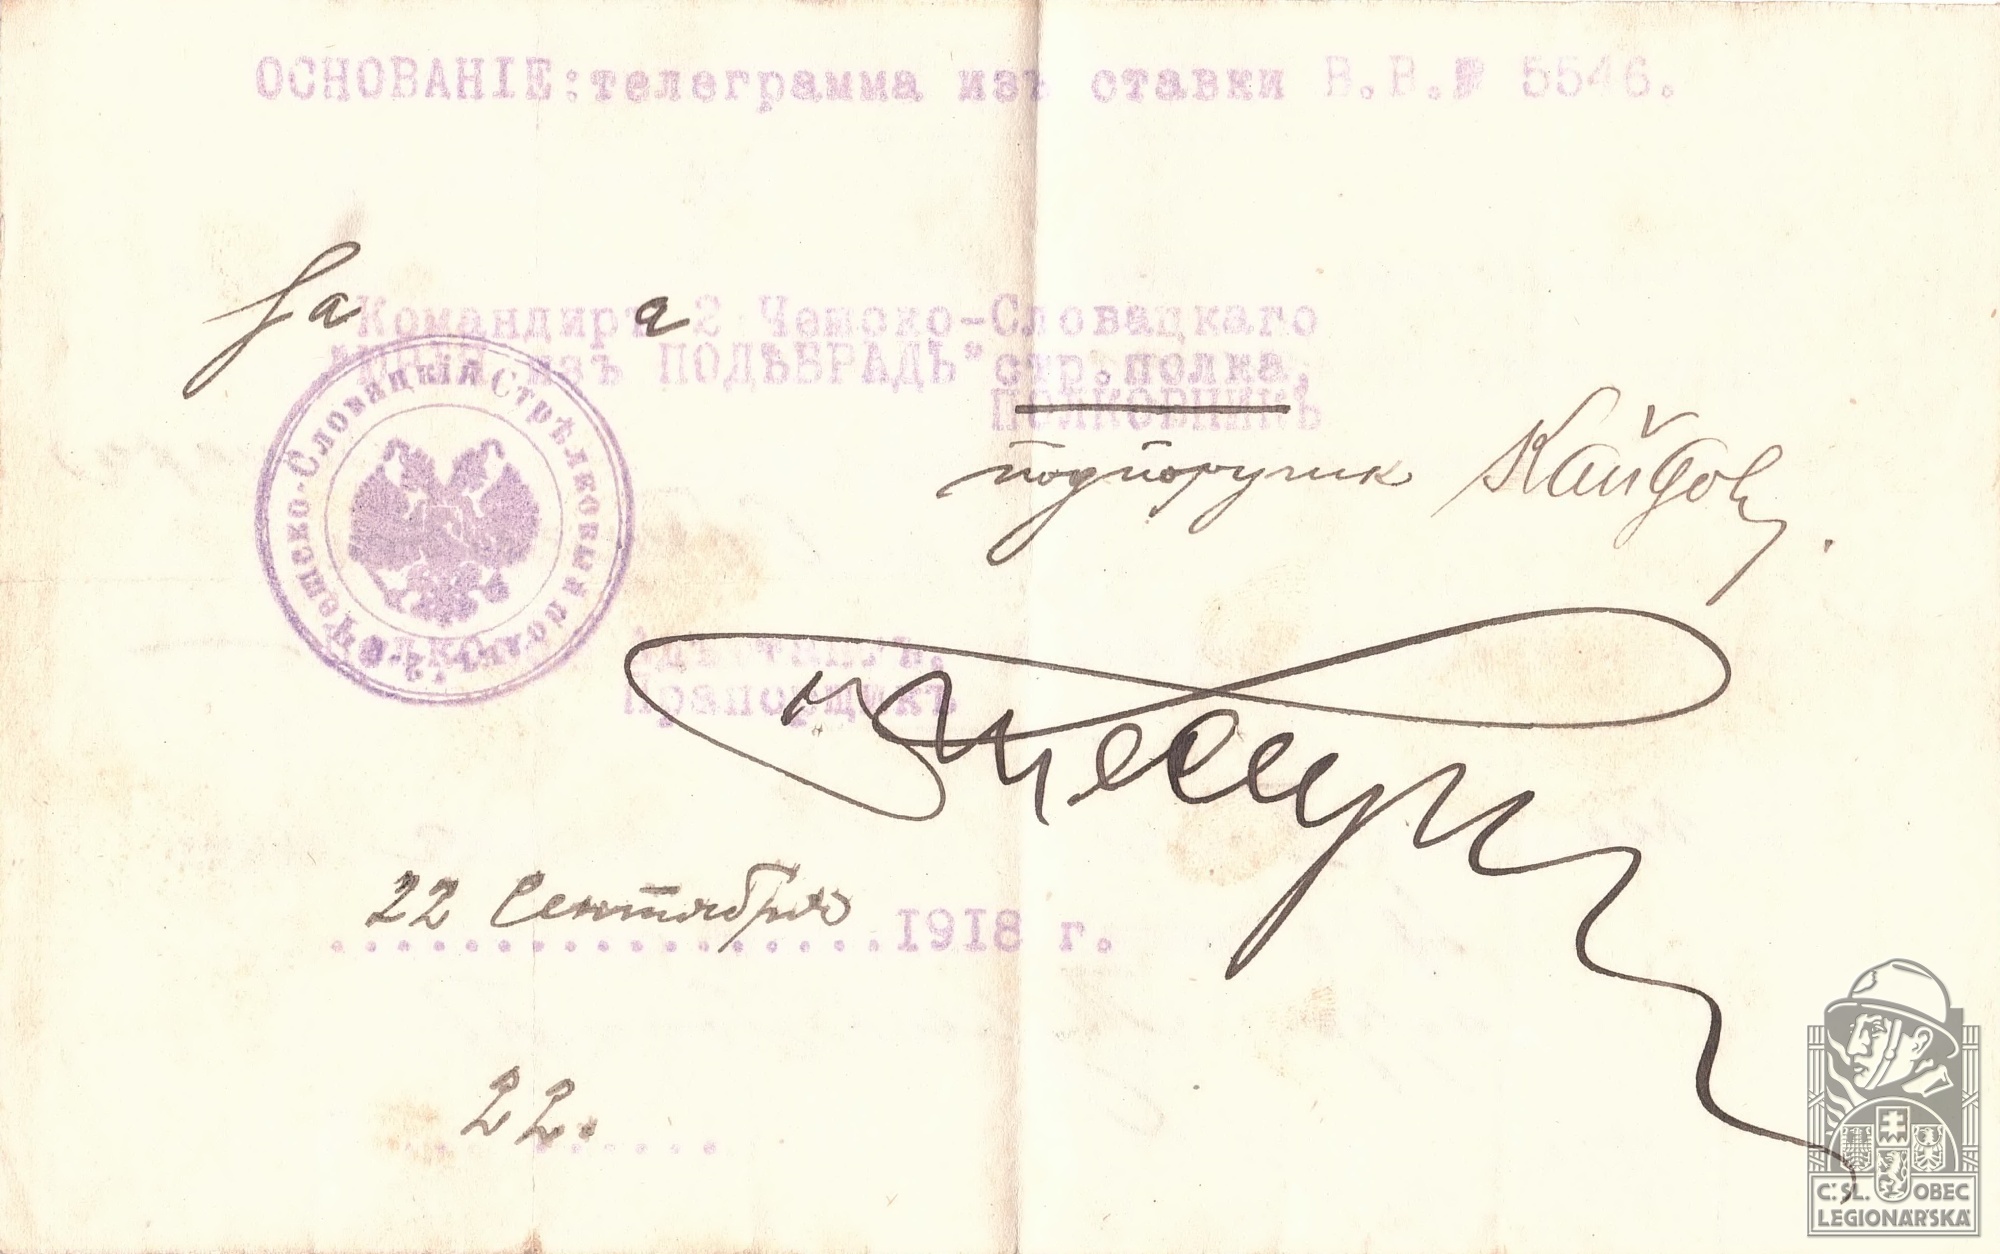 ОСНОВАНІЕ: телеграмма изъ ставки В.В.№ 5546.
За Командира 2 Чешско-Словацкаго
"ЮРІЯ изъ ПОДѢБРАДЪ" стр.полка,
ПОЛКОВНИКЪ
подпоручик Кайдош.
Чешско-Словацкій Стрѣлковый
полкъ
Адъютантъ,
Прапорщикъ
22 Сентября 1918 г.
22.
Č.SL. OBEC
LEGIONÁŘSKÁ